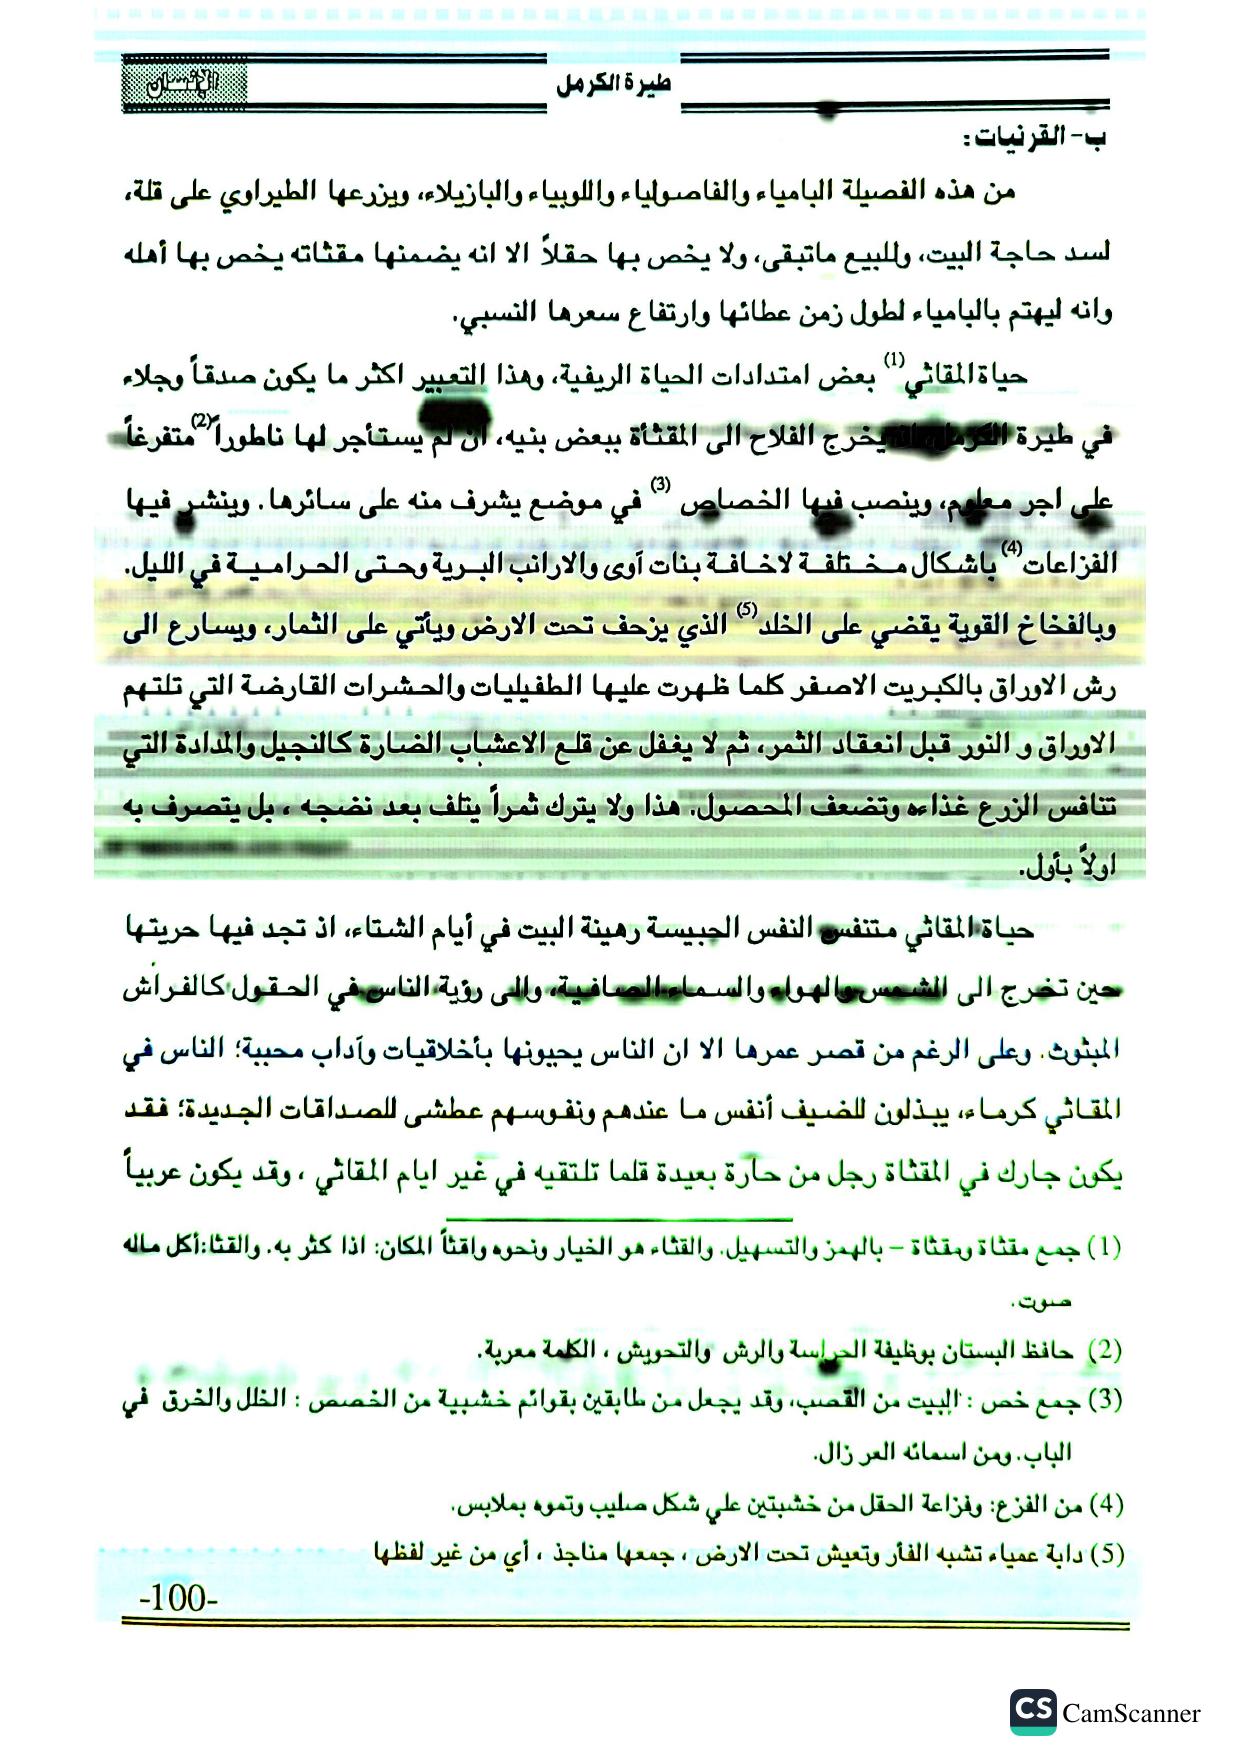 طيرة الكرمل
الإنسان
ب- القرنيات:
من هذه الفصيلة البامياء والفاصولياء واللوبياء والبازيلاء، ويزرعها الطيراوي على قلة،
لسد حاجة البيت، وللبيع ماتبقى، ولا يخص بها حقلاً الا انه يضمنها مقثاته يخص بها أهله
وانه ليهتم بالبامياء لطول زمن عطائها وارتفاع سعرها النسبي.
حياة المقاثي(1) بعض امتدادات الحياة الريفية، وهذا التعبير اكثر ما يكون صدقاً وجلاء
في طيرة الكرمل، يخرج الفلاح الى المقثأة ببعض بنيه، ان لم يستأجر لها ناطوراً(2) متفرغاً
على اجر معلوم، وينصب فيها الخصاص (3) في موضع يشرف منه على سائرها. وينشر فيها
الفزاعات(4) باشكال مختلفة لاخافة بنات آوى والارانب البرية وحتى الحرامية في الليل.
وبالفخاخ القوية يقضي على الخلد(5) الذي يزحف تحت الارض ويأتي على الثمار، ويسارع الى
رش الاوراق بالكبريت الاصفر كلما ظهرت عليها الطفيليات والحشرات القارضة التي تلتهم
الاوراق و النور قبل انعقاد الثمر، ثم لا يغفل عن قلع الاعشاب الضارة كالنجيل والمدادة التي
تنافس الزرع غذاءه وتضعف المحصول. هذا ولا يترك ثمراً يتلف بعد نضجه ، بل يتصرف به
اولاً بأول.
حياة المقاثي متنفس النفس الحبيسة رهينة البيت في أيام الشتاء، اذ تجد فيها حريتها
حين تخرج الى الشمس والهواء والسماء الصافية، والى رؤية الناس في الحقول كالفراش
المبثوث. وعلى الرغم من قصر عمرها الا ان الناس يحيونها بأخلاقيات وآداب محببة؛ الناس في
المقاثي كرماء، يبذلون للضيف أنفس ما عندهم ونفوسهم عطشى للصداقات الجديدة؛ فقد
يكون جارك في المقثاة رجل من حارة بعيدة قلما تلتقيه في غير ايام المقاثي ، وقد يكون عربياً
(1) جمع مقثاة ومقثاة – بالهمز والتسهيل. والقثاء هو الخيار ونحوه واقثأ المكان: اذا كثر به. والقثا:أكل ماله
صوت.
(2) حافظ البستان بوظيفة الحراسة والرش والتحويش ، الكلمة معربة.
(3) جمع خص : البيت من القصب، وقد يجعل من طابقين بقوائم خشبية من الخصص : الخلل والخرق في
الباب. ومن اسمائه العر زال.
(4) من الفزع: وفزاعة الحقل من خشبتين علي شكل صليب وتموه بملابس.
(5) دابة عمياء تشبه الفأر وتعيش تحت الارض ، جمعها مناجذ ، أي من غير لفظها
-100-
CS CamScanner